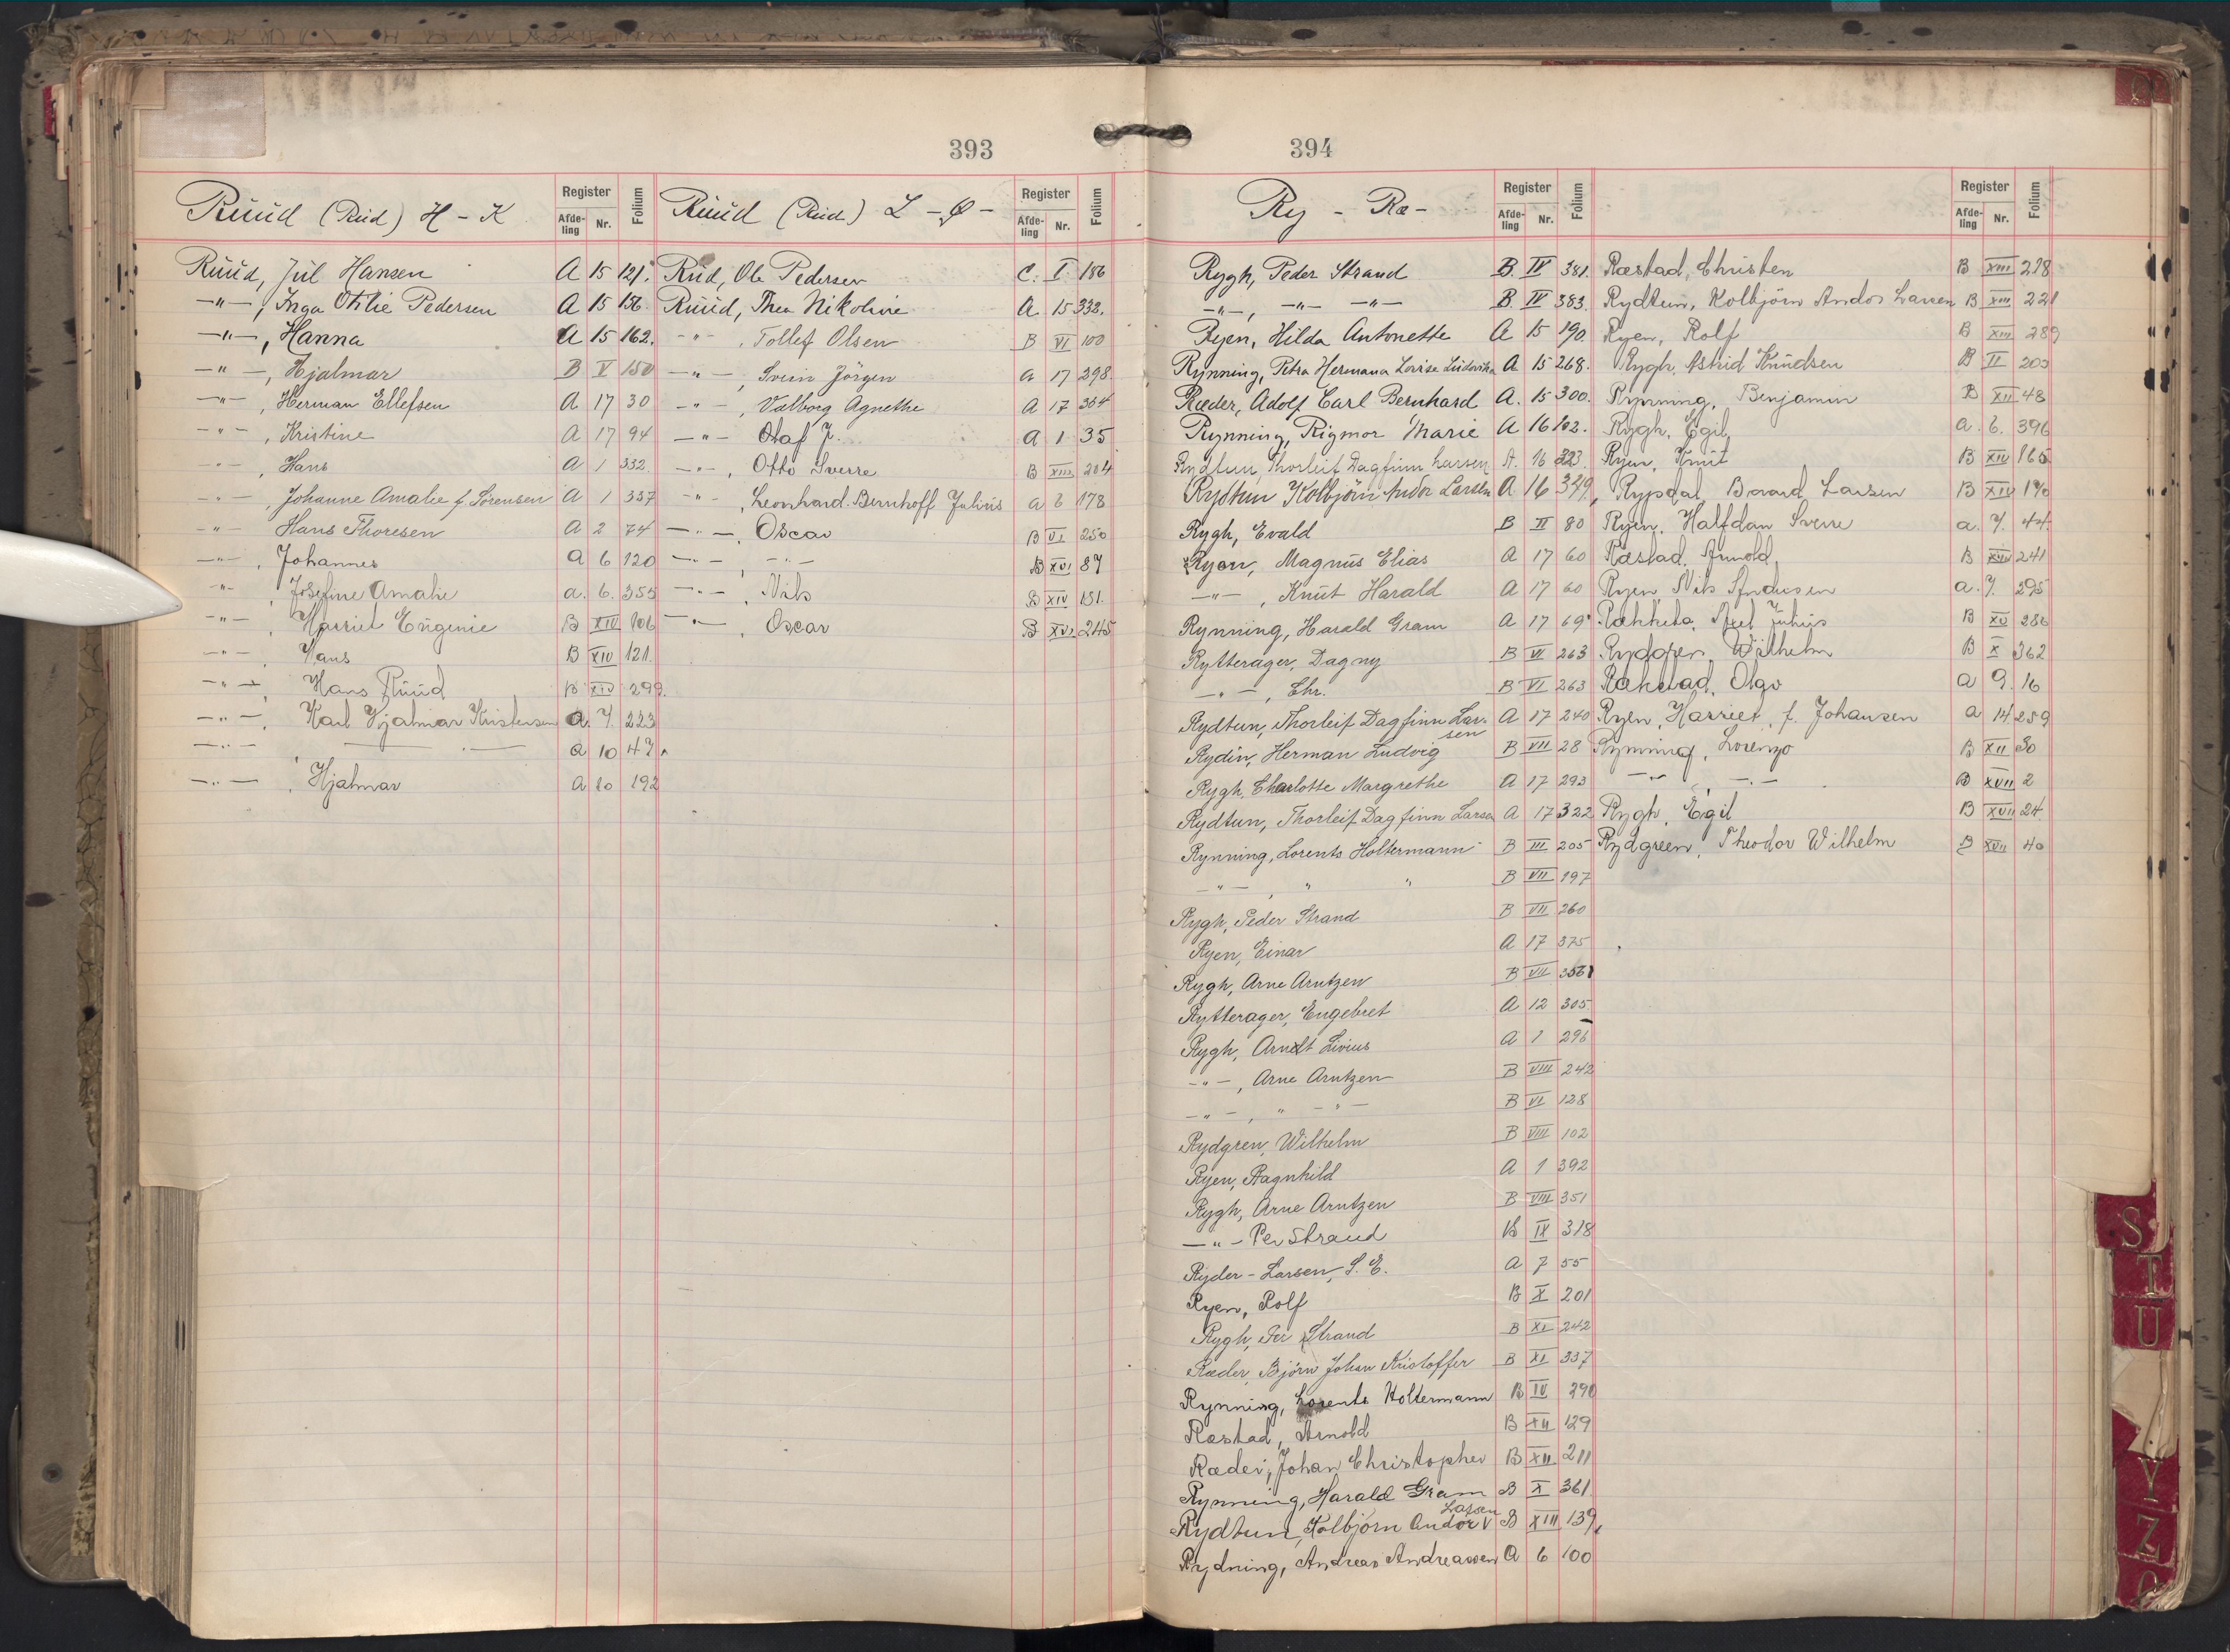 393
Ruud (Rud) H - K
Register
Afde-ling Nr. Folium
Ruud, Jul Hansen A 15 121.
-"-, Inga Otilie Pedersen A 15 156.
-"-, Hanna A 15 162.
-"-, Hjalmar B V 150
-"-, Herman Ellefsen A 17 30
-"-, Kristine A 17 94
-"-, Hans A 1 332.
-"-, Johanne Amalie f. Sørensen A 1 337
-"- Hans Thoresen A 2 74
-"-, Johannes a 6 120
-"-, Josefine Amalie a. 6. 355
-"-, Harriet Eugenie B XIV 106
-"-, Hans B XIV 121.
-"-, Hans Ruud B XIV 299.
-"-, Karl Hjalmar Kristensen a. 7. 223
-"-, a 10 47
-"-, Hjalmar a 10 192
Ruud (Rud) L - Ø -
Register
Afde-ling Nr. Folium
Rud, Ole Pedersen C. I. 186
Ruud, Thea Nikoline A 15 332.
-"-, Tollef Olsen B VI 100
-"-, Svein Jörgen a 17 298.
-"-, Valborg Agnethe A 17 364
-"- Olaf J. a 1 35
-"-, Otto Sverre B XIII 204
-"-, Leonhard Bernhoff Julius a 6 178
-"-, Oscar B VI 250
-"-, -"- B XVI 87
-"-, Nils B XIV 151.
-"-, Oscar B XVI 245
394
Ry - Ræ -
Register
Afde-ling Nr. Folium
Rygh, Peder Strand B. IV 381.
-"-, -"- -"- B IV 383.
Ryen, Hilda Antonette A 15 190.
Rynning, Petra Hermana Lovise Ludovika A 15 268.
Ræder, Adolf Carl Bernhard A. 15 300.
Rynning, Rigmor Marie A 16 102.
Rydtun, Thorleif Dagfinn Larsen A. 16 323.
Rydtun Kolbjörn Andor Larsen A 16 379
Rygh, Evald B II 80
Ryen, Magnus Elias A 17 60
-"-, Knut Harald A 17 60
Rynning, Harald Gram A 17 69
Rytterager, Dagny B VI 263
-"-, Chr. B VI 263
Rydtun, Thorleif Dagfinn Larsen A 17 240
Rydin, Herman Ludvig B VII 28
Rygh, Charlotte Margrethe A 17 293
Rydtun, Thorleif Dagfinn Larsen A 17 322
Rynning, Lorents Holtermann B III 205
-"-, " " B VII 197
Rygh, Peder Strand B VII 260
Ryen, Einar A 17 375
Rygh, Arne Arntzen B VII 356
Rytterager, Engebret A 12 305
Rygh, Arndt Livius A 1 296
-"-, Arne Arntzen B VIII 242
-"-, " -"- B VI 128
Rydgren, Wilhelm B VIII 102
Ryen, Ragnhild A 1 392
Rygh, Arne Arntzen B VIII 351
-"- Per Strand B IX 318
Ryder-Larsen, S. E. A 7 55
Ryen, Rolf B X 201
Rygh, Per Strand B XI 242
Ræder, Björn Johan Kristoffer B XI 337
Rynning, Lorents Holtermann B IV 290
Ræstad, Arnold B XII 129
Ræder, Johan Christopher B XII 211
Rynning, Harald Gram B X 361
Rydtun, Kolbjörn Andor Larsen B XIII 139
Rydning, Andreas Andreassen A 6 100
Register
Afde-ling Nr. Folium
Ræstad, Christen B XIII 218
Rydtun, Kolbjörn Andor Larsen B XIII 221
Ryen, Rolf B XIII 289
Rygh, Astrid Knudsen B II 203
Rynning, Benjamin B XII 48
Rygh, Egil a. 6. 396
Ryen, Knut B XIV 165
Rypdal, Larsen B XIV 190
Ryen, Halfdan Sverre a. 7. 44
Ræstad, Arnold B XIV 241
Ryen, Nils a. 7. 295
Julius B XV 286
Rydgren, Wilhelm B X 362
Olga a 9. 16
Ryen, Harriet, f. Johansen a 14 259
Rynning, Lorenzo B XII 30
-"-, -"- B XVII 2
Rygh, Egil B XVII 24
Rydgreen, Theodor Wilhelm B XVII 40
S
T
U
Y
Z